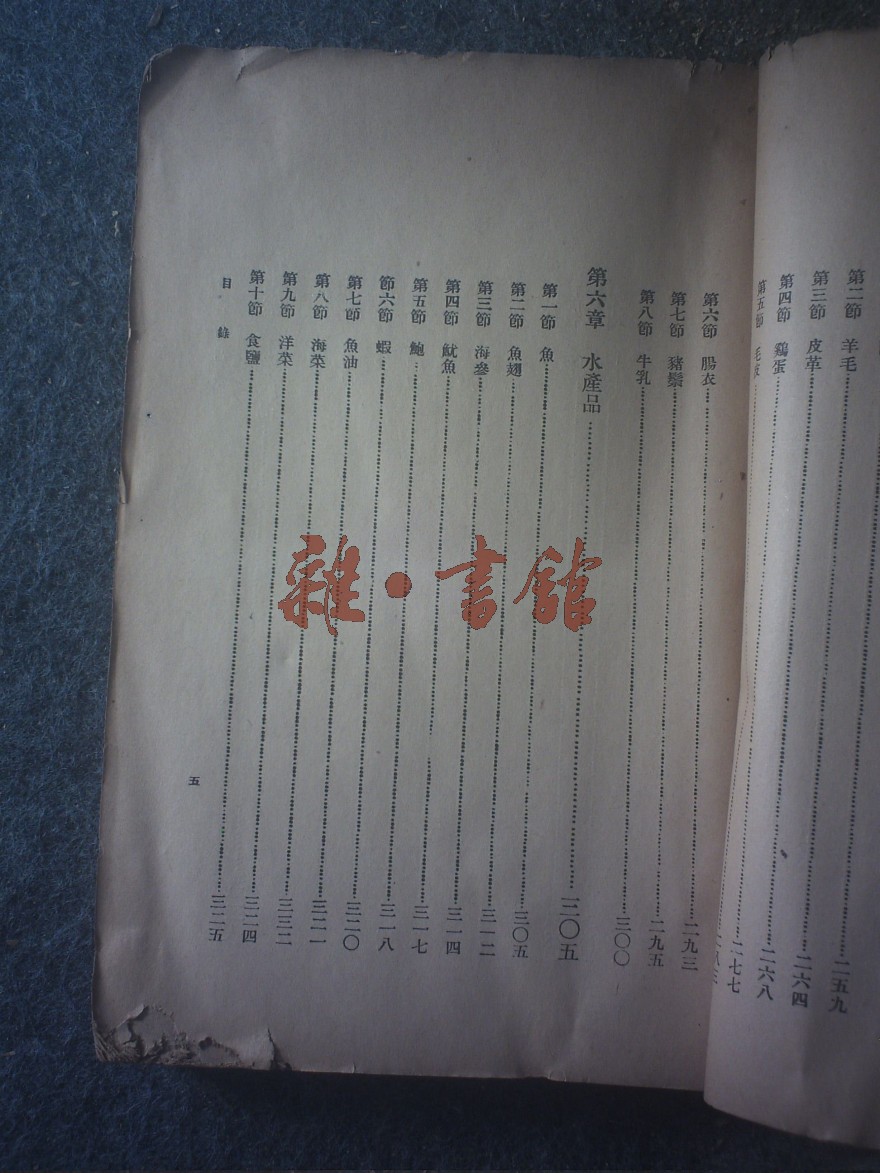 第二節 羊毛……二五九
第三節 皮革……二六四
第四節 鷄蛋……二六八
第五節 毛皮……二七七
第六節 腸衣……二九三
第七節 豬鬃……二九五
第八節 牛乳……三〇〇
第六章 水產品……三〇五
第一節 魚……三〇五
第二節 魚翅……三一二
第三節 海參……三一四
第四節 魷魚……三一七
第五節 鮑……三一八
節六節 蝦……三二〇
第七節 魚油……三二一
第八節 海菜……三二二
第九節 洋菜……三二四
第十節 食鹽……三二五
目錄
五
雜·書館